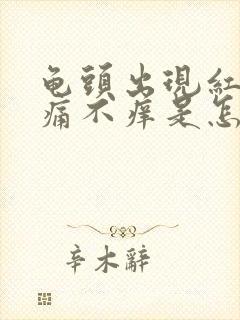 龟頭出現紅
痛不痒是怎
辛木辭